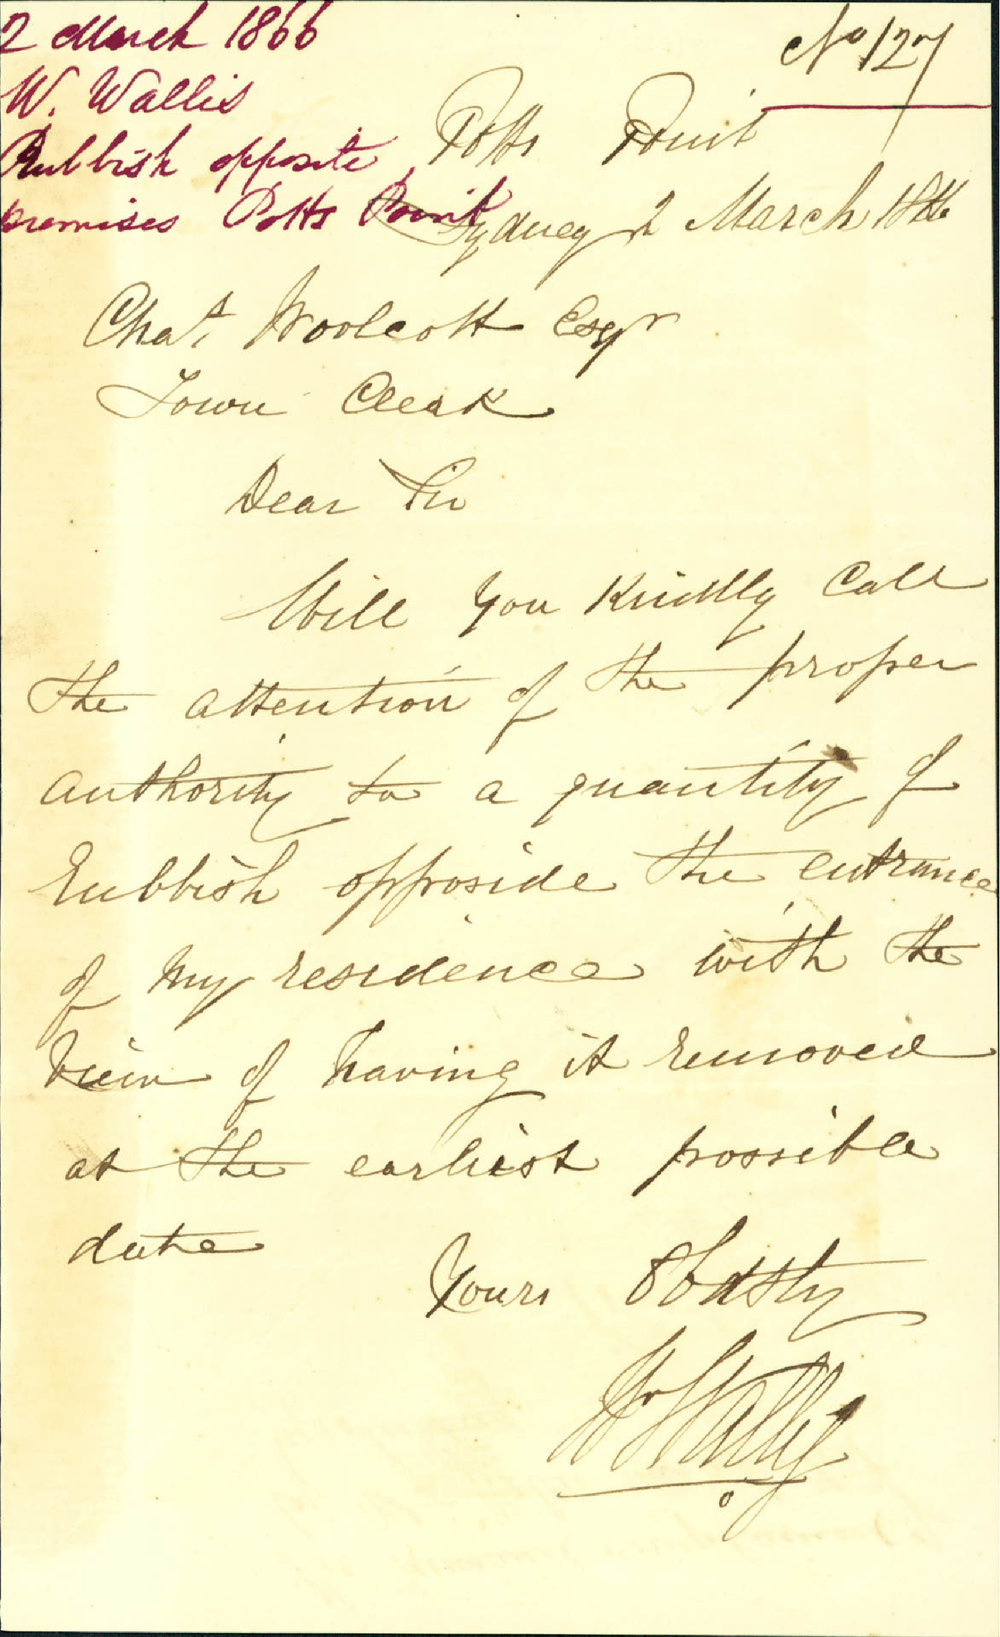 2 March 1866
W. Wallis
Rubbish opposite
premises Potts Point
No 127
Potts Point
Sydney 2 March 1866
Chas. Woolcott Esqr
Town Clerk
Dear Sir
Will you Kindly Call
the attention of the proper
authority to a quantity of
Rubbish opposide the entrance
of my residence with the
View of having it removed
at the earliest possible
date
Yours Obdtly
W Wallis